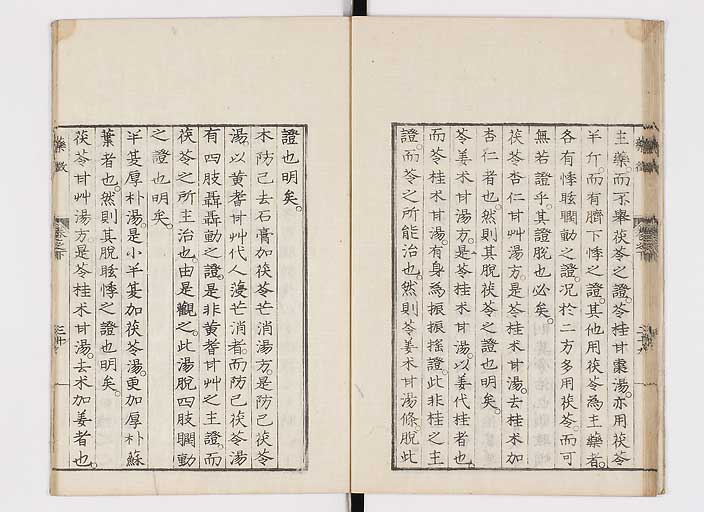 主藥而不舉茯苓之證。苓桂甘棗湯。亦用茯苓
半斤。而有臍下悸之證。其他用茯苓為主藥者。
各有悸眩瞤動之證。況於二方多用茯苓。而可
無若證乎。其證脫也必矣。
茯苓杏仁甘艸湯方。是苓桂朮甘湯。去桂朮加
杏仁者也。然則其脫茯苓之證也明矣。
苓姜朮甘湯方。是苓桂朮甘湯。以姜代桂者也。
而苓桂朮甘湯。有身為振振搖證。此非桂之主
證。而苓之所能治也。然則苓姜朮甘湯條。脫此
證也明矣。
木防己去石膏加茯苓芒消湯方。是防己茯苓
湯。以黃耆甘艸代人滲芒消者。而防己茯苓湯
有四肢聶聶動之證。是非黃耆甘艸之主證。而
茯苓之所主治也。由是觀之。此湯脫四肢瞤動
之證也明矣。
半夏厚朴湯。是小半夏加茯苓湯。更加厚朴蘇
葉者也。然則其脫眩悸之證也明矣。
茯苓甘艸湯方。是苓桂朮甘湯。去朮加姜者也。
藥徵
卷之下